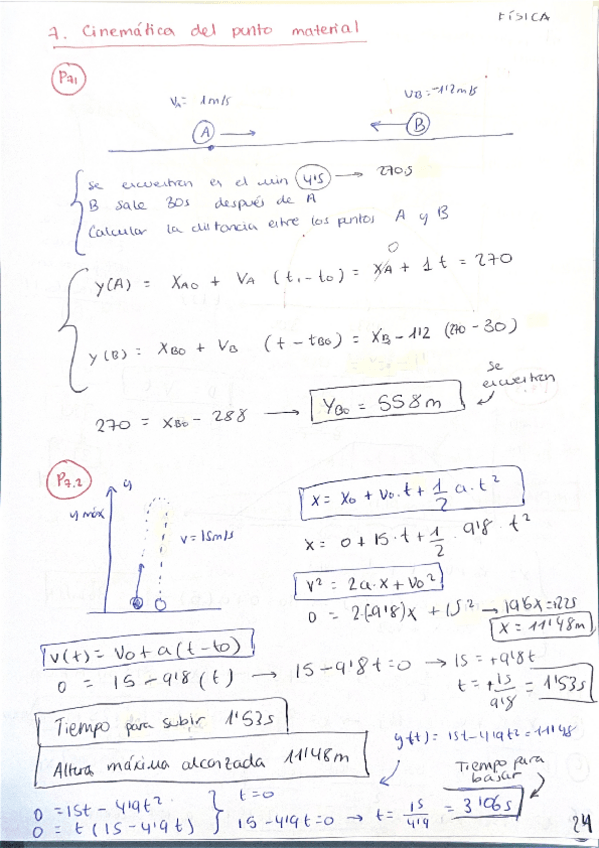 FÍSICA
7. Cinemática del punto material
P7.1
VA = 1m/s
VB = -1'2m/s
A
B
Se encuentran en el min 4'5 → 270s
B sale 30s después de A
Calcular la distancia entre los puntos A y B
y(A) = XA0 + VA (t1-t0) = XA + 1t = 270
0
y(B) = XB0 + VB (t-tB0) = XB - 1'2 (270-30)
270 = XB0 - 288 → YB0 = 558m
se encuentran
P7.2
y
y máx
v = 15m/s
x = x0 + v0·t + 1/2 a·t²
x = 0 + 15·t + 1/2 · 9'8 · t²
v² = 2a·x + v0²
0 = 2·(-9'8)x + 15² → 19'6x = 225
x = 11'48m
v(t) = v0 + a(t-t0)
0 = 15 - 9'8(t) → 15 - 9'8t = 0 → 15 = +9'8t
t = +15/9'8 = 1'53s
Tiempo para subir 1'53s
Altura máxima alcanzada 11'48m
y(t) = 15t - 4'9t² = 11'48
Tiempo para bajar
0 = 15t - 4'9t² } t=0
0 = t(15 - 4'9t) } 15 - 4'9t = 0 → t = 15/4'9 = 3'06s
24